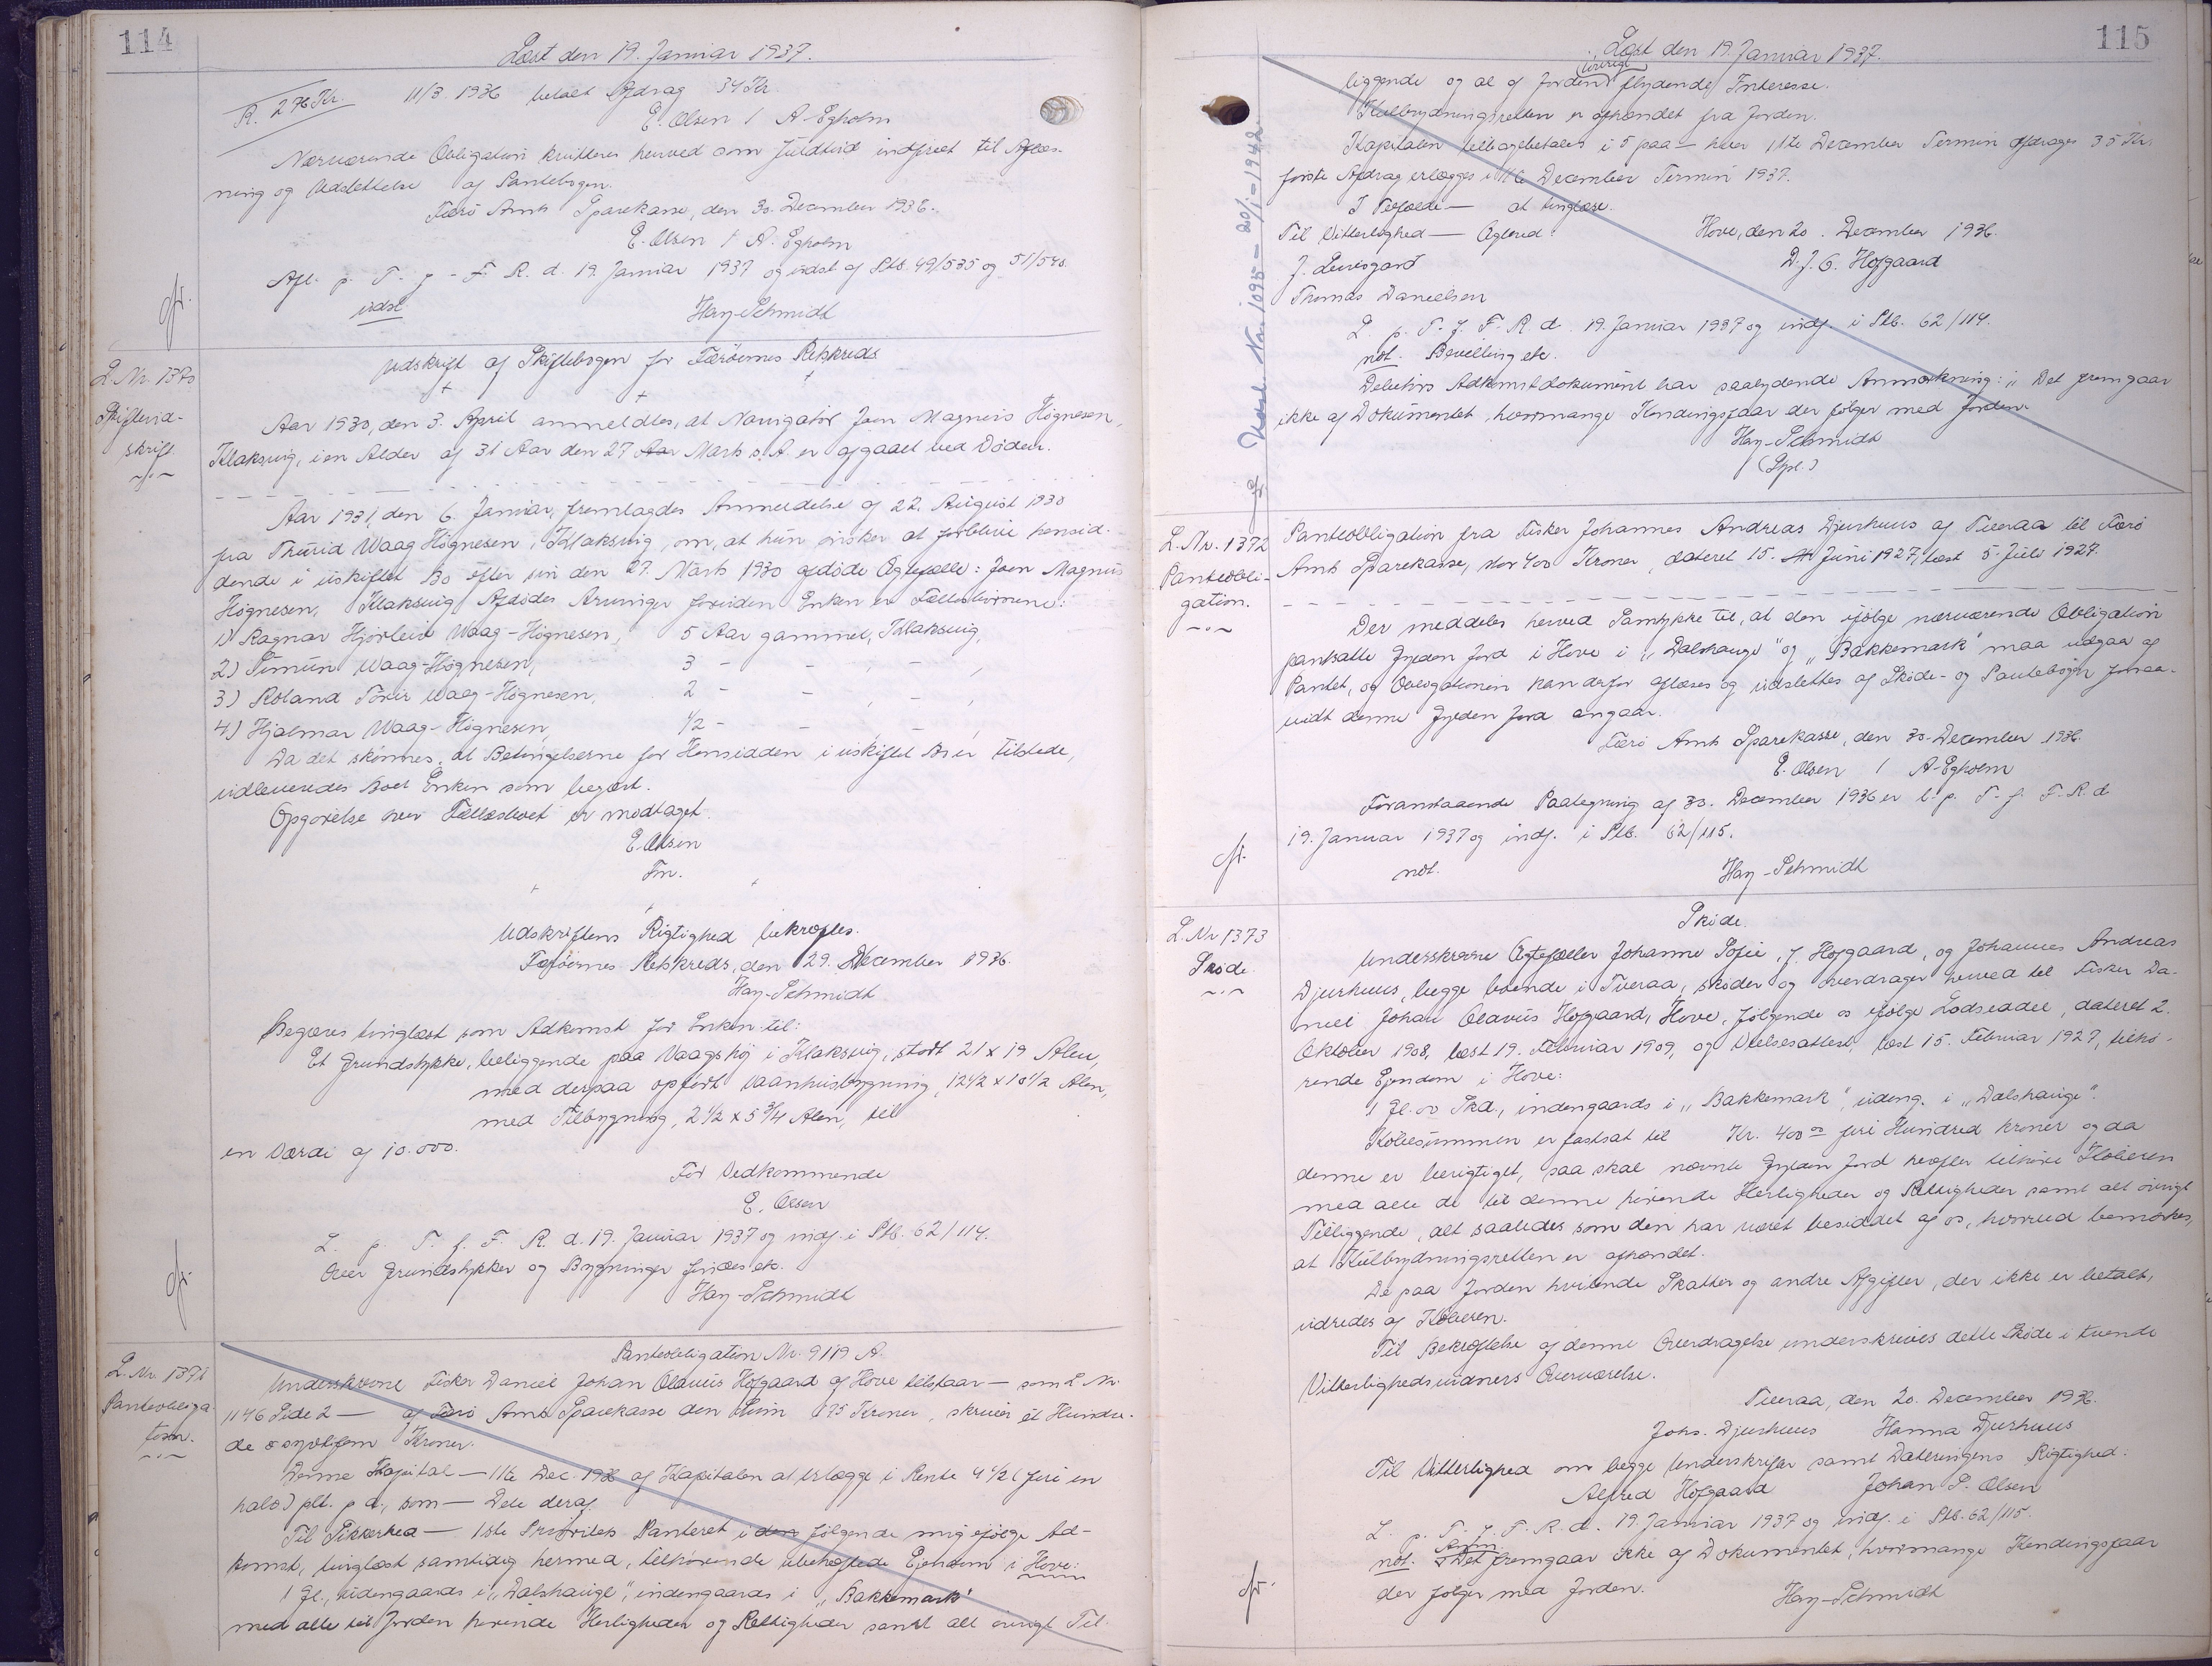 114
Læst den 19. Januar 1937.
R. 276 Kr.
11/3 1936 betalt Afdrag 34 Kr.
E. Olsen / A. Egholm
Nærværende Obligation kvitteres herved som fuldtud indfriet til Aflæs-
ning og Udslettelse af Pantebogen.
Færø Amts Sparekasse, den 30. December 1936.
E. Olsen / A. Egholm
Afl. p. T. f. F. R. d. 19. Januar 1937 og udsl. af Ptb. 49/535 og 51/540.
udsl.
Hay-Schmidt
cfr.
L. Nr. 1370
Skifteud-
skrift
Udskrift af Skiftebogen for Færøernes Retskreds
Aar 1930, den 3. April anmeldtes, at Navigatør Joen Magnus Høgnesen,
Klaksvig, i en Alder af 31 Aar den 27 Aar Marts s. A. er afgaaet ved Døden.
Aar 1931, den 6. Januar, fremlagdes Anmeldelse af 22. August 1930
fra Thurid Waag Høgnesen, Klaksvig, om, at hun ønsker at forblive hensid-
dende i uskiftet Bo efter sin den 27. Marts 1930 afdøde Ægtefælle: Joen Magnus
Høgnesen, Klaksvig. Afdødes Arvinger foruden Enken er Fællesbørnene:
1) Ragnar Hjørleid Waag-Høgnesen, 5 Aar gammel, Klaksvig,
2) Timun Waag-Høgnesen, 3 - - , - ,
3) Roland Torir Waag-Høgnesen, 2 - - , - ,
4) Hjalmar Waag-Høgnesen, 1/2 - - , - ,
Da det skønnes, at Betingelserne for Hensidden i uskiftet Bo er tilstede,
udleveredes Boet Enken som begært.
Opgørelse over Fællesboet er modtaget.
E. Olsen
Fm.
Udskriftens Rigtighed bekræftes.
Færøernes Retskreds, den 29. December 1936.
Hay-Schmidt
Begæres tinglæst som Adkomst for Enken til:
Et Grundstykke, beliggende paa Vaagshøj i Klaksvig, stort 21 x 19 Alen,
med derpaa opført Vaanhusbygning, 12 1/2 x 10 1/2 Alen,
med Tilbygning, 2 1/2 x 5 3/4 Alen, til
en Værdi af 10.000.
For Vedkommende
E. Olsen
L. p. T. f. F. R. d. 19. Januar 1937 og indf. i Ptb. 62/114.
Over Grundstykker og Bygninger findes etc.
Hay-Schmidt
cfr.
L. Nr. 1371
Panteobliga-
tion.
Panteobligation Nr. 9119 A.
Underskrevne Fisker Daniel Johan Olavus Hofgaard af Hove tilstaar — som L. Nr.
1146 Side 2 — af Færø Amts Sparekasse den Sum 175 Kroner, skriver et Hundre-
de og syvtifem Kroner.
Denne Kapital — 11te Dec. 1936 af Kapitalen at erlægge i Rente 4 1/2 (fire en
halv) pCt. p. a., som — Dele deraf.
Til Sikkerhed — 1ste Prioritets Panteret i den følgende mig ifølge Ad-
komst, tinglæst samtidig hermed, tilhørende ubehæftede Ejendom i Hove:
1 Gl., udengaards i "Dalshauge", indengaards i "Bakkemark"
med alle til Jorden hørende Herligheder og Rettigheder samt alt øvrigt Til-
115
Læst den 19. Januar 1937.
liggende og al af Jorden øvrigt flydende Interesse.
Kulbrydningsretten er afhændet fra Jorden.
Kapitalen tilbagebetales i 5 paa — hver 11te December Termin afdrages 35 Kr.
første Afdrag erlægges i 11te December Termin 1937.
I Tilfælde — at tinglæse.
Til Vitterlighed — Egfred Hove, den 20. December 1936.
D. J. O. Hofgaard
Thomas Danielsen
L. p. T. f. F. R. d. 19. Januar 1937 og indf. i Ptb. 62/114.
not. Bevilling etc.
Debitors Adkomstdokument har saalydende Anmærkning: "Det fremgaar
ikke af Dokumentet, hvormange Kendingsfaar der følger med Jorden.
Hay-Schmidt
(Spl.)
Udsl. Nr. 1095 — 20/1-1942.
cfr.
L. Nr. 1372
Panteobli-
gation.
Panteobligation fra Fisker Johannes Andreas Djurhuus af Tveraa til Færø
Amts Sparekasse, stor 400 Kroner, dateret 15. Juni 1927, læst 5. Juli 1927.
Der meddeles herved Samtykke til, at den ifølge nærværende Obligation
pantsatte Gylden Jord i Hove i "Dalshauge" og "Bakkemark" maa udgaa af
Pantet, og Obligationen kan derfor aflæses og udslettes af Skøde- og Pantebogen forsaa-
vidt denne Gylden Jord angaar.
Færø Amts Sparekasse, den 30. December 1936.
E. Olsen / A. Egholm
Foranstaaende Paategning af 30. December 1936 er l. p. T. f. F. R. d.
19. Januar 1937 og indf. i Ptb. 62/115.
not.
Hay-Schmidt
cfr.
L. Nr. 1373
Skøde.
Skøde.
Underskrevne Ægtefæller Johanne Sofie, f. Hofgaard, og Johannes Andreas
Djurhuus, begge boende i Tveraa, skøder og overdrager herved til Fisker Da-
niel Johan Olavus Hofgaard, Hove, følgende os ifølge Lodseddel, dateret 2.
Oktober 1908, læst 19. Februar 1909, og Delesattest, læst 15. Februar 1927, tilhø-
rende Ejendom i Hove:
1 Gl. 00 Skd., indengaards i "Bakkemark", udeng. i "Dalshauge".
Købesummen er fastsat til Kr. 400 00 fire Hundred Kroner og da
denne er berigtiget, saa skal nævnte Gylden Jord herefter tilhøre Køberen
med alle de til denne hørende Herligheder og Rettigheder samt alt øvrigt
Tilliggende, alt saaledes som den har været besiddet af os, hvorved bemærkes,
at Kulbrydningsretten er afhændet.
De paa Jorden hvilende Skatter og andre Afgifter, der ikke er betalt,
udredes af Køberen.
Til Bekræftelse af denne Overdragelse underskrives dette Skøde i tvende
Vitterlighedsvidners Overværelse.
Tveraa, den 20. December 1936.
Johs. Djurhuus Hanna Djurhuus
Til Vitterlighed om begge Underskrifter samt Dateringens Rigtighed:
Alfred Hofgaard Johan P. Olsen
L. p. T. f. F. R. d. 19. Januar 1937 og indf. i Ptb. 62/115.
not. Anm. Det fremgaar ikke af Dokumentet, hvormange Kendingsfaar
der følger med Jorden.
Hay-Schmidt
cfr.